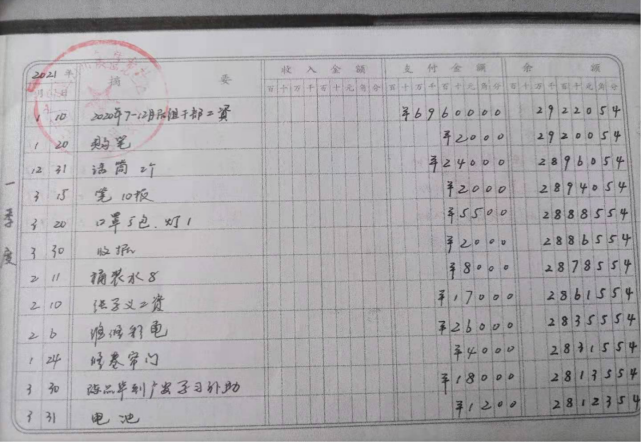 2021年 摘要 收入金额 支付金额 余额
月 百十万千百十元角分 百十万千百十元角分 百十万千百十元角分
1 10 2020年7-12月 组干部工资 ¥6960000 2922054
1 20 购笔 ¥2000 2920054
12 31 话筒2个 ¥24000 2896054
3 15 笔10板 ¥2000 2894054
3 20 口罩5包、灯1 ¥5500 2888554
3 30 收据 ¥2000 2886554
2 11 桶装水8 ¥8000 2878554
2 10 工资 ¥17000 2861554
2 6 电 ¥26000 2835554
1 24 修卷帘门 ¥4000 2831554
3 30 学习补助 ¥18000 2813554
3 31 电池 ¥1200 2812354
一季度